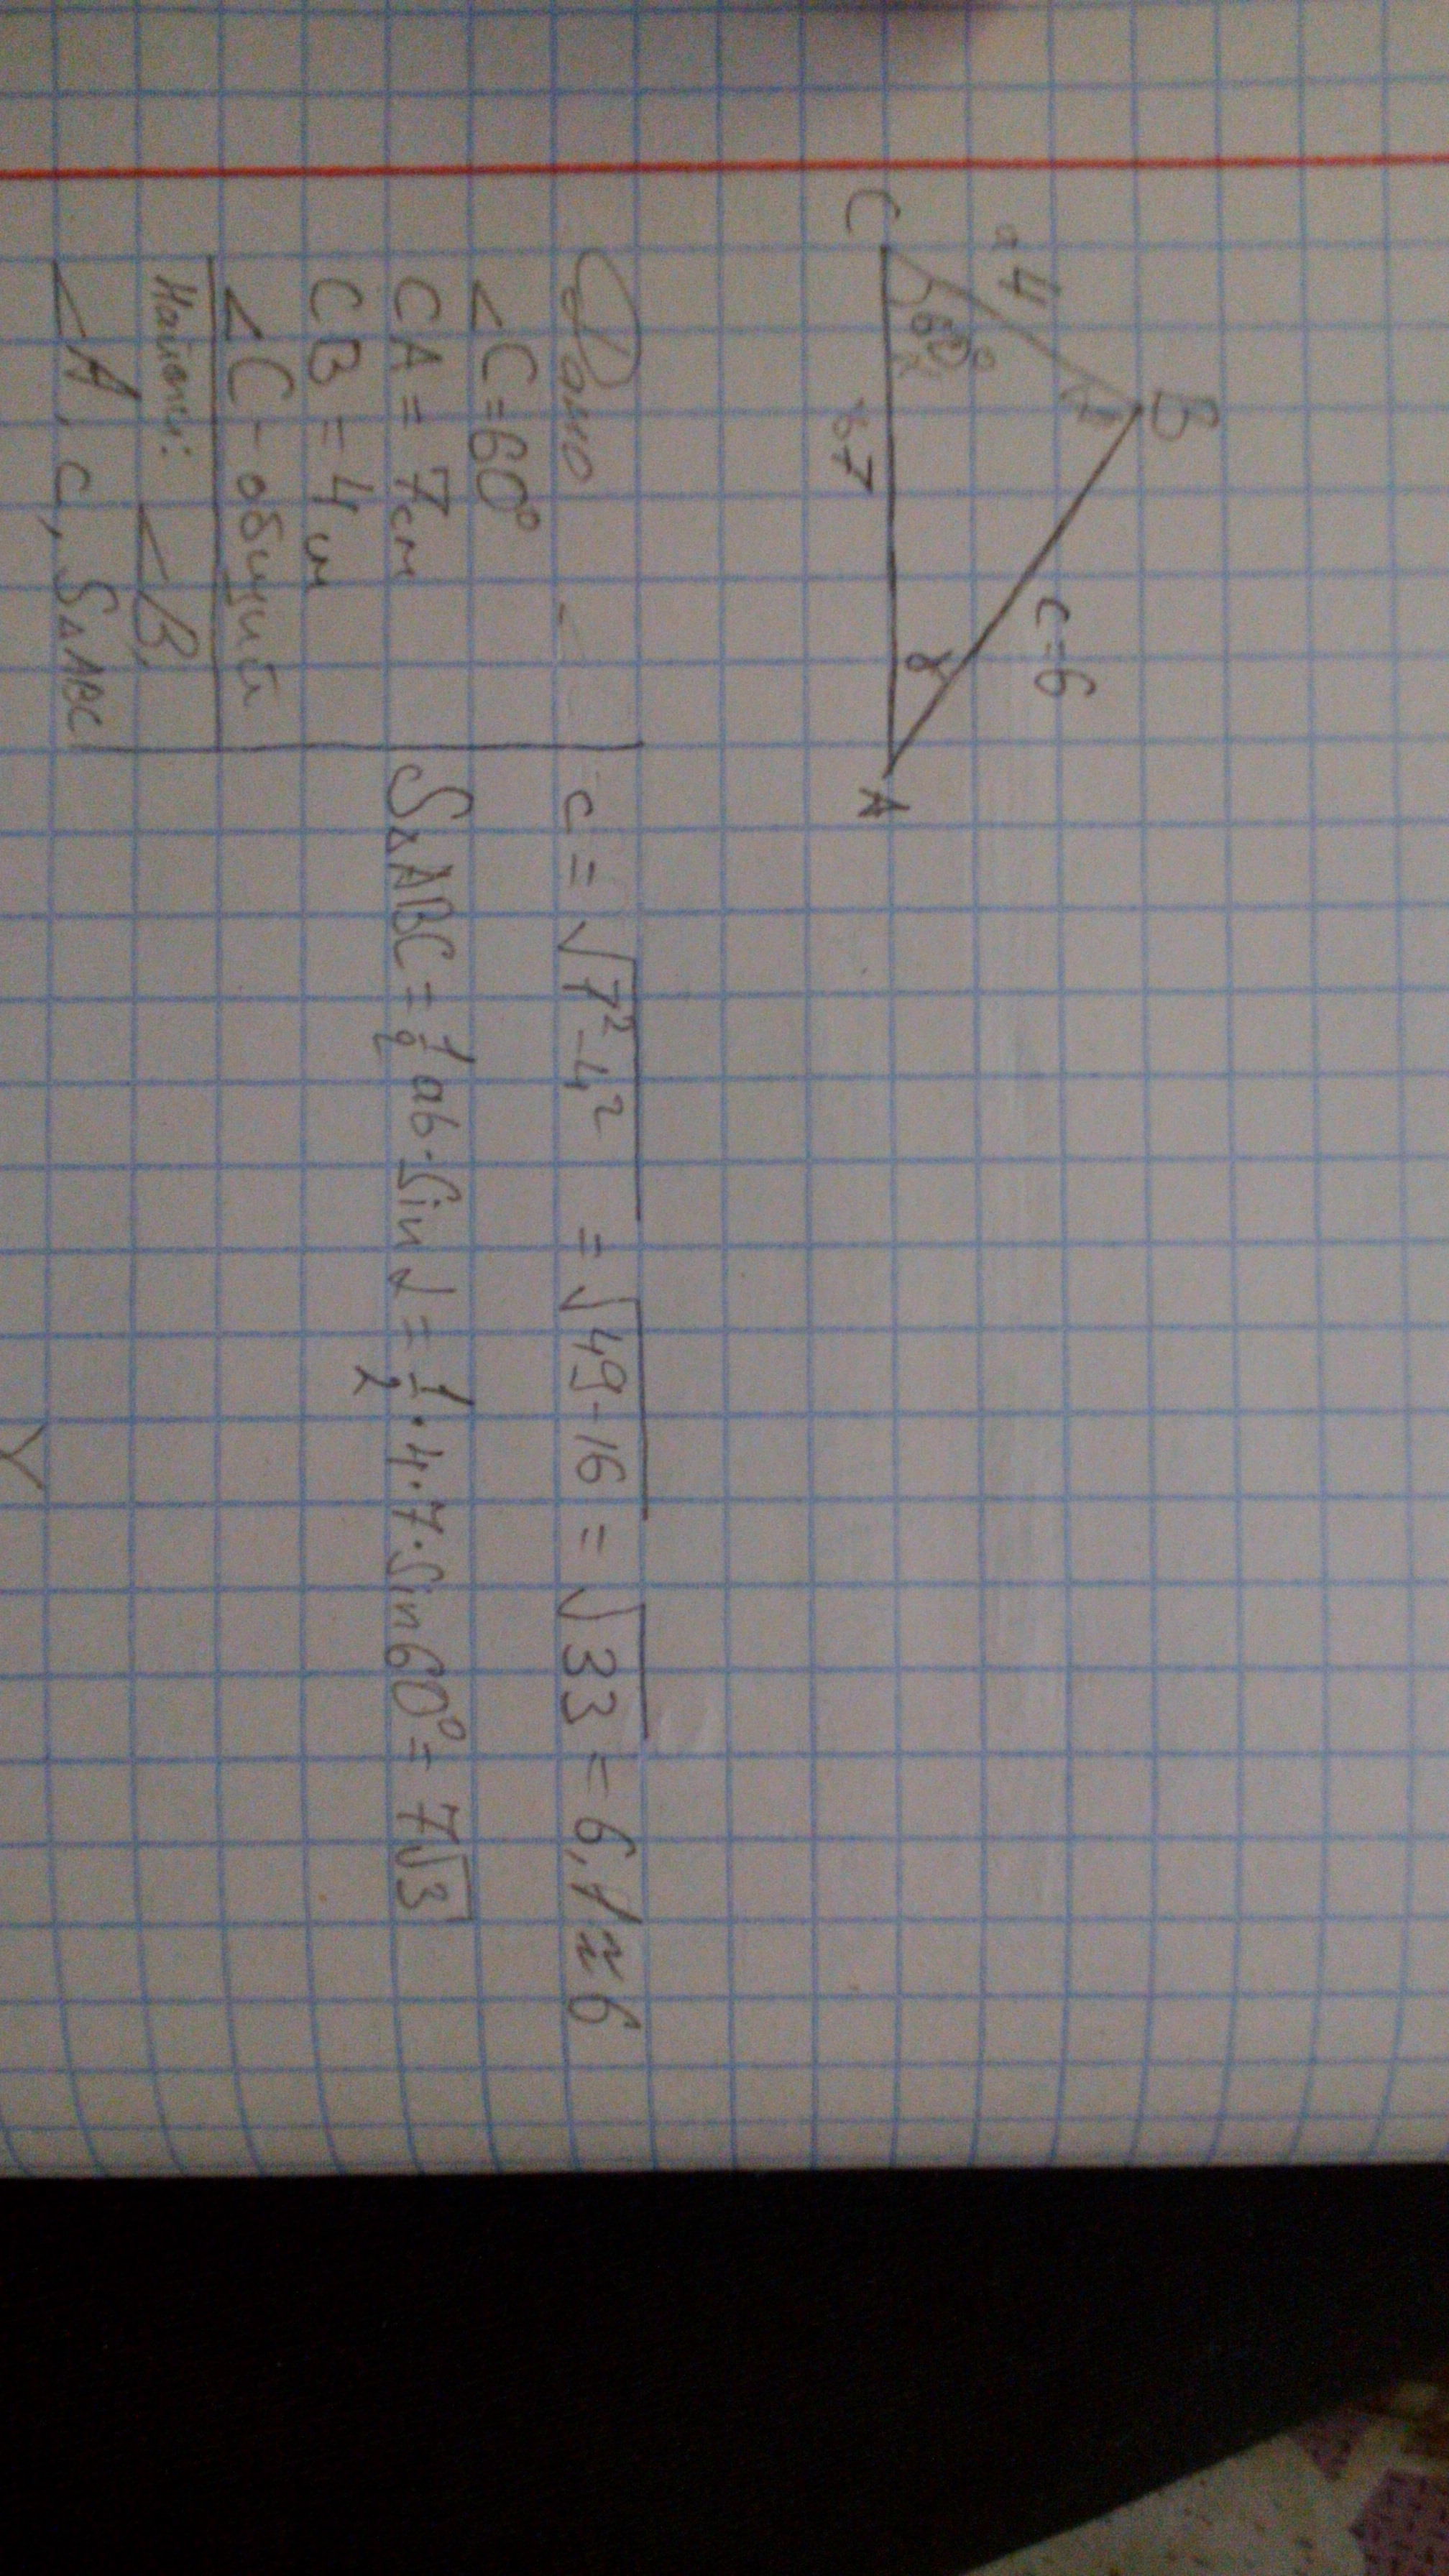 B
a 4
c=6
60°
γ
C
в 7
A
Дано
∠C=60°
CA = 7см
CB = 4см
∠C - общий
Найти: ∠B,
∠A, c, S△ABC
c = √7²-4² = √49-16 = √33 = 6,1 ≈ 6
S△ABC = 1/2 ab·sin d = 1/2 · 4 · 7 · sin 60° = 7√3